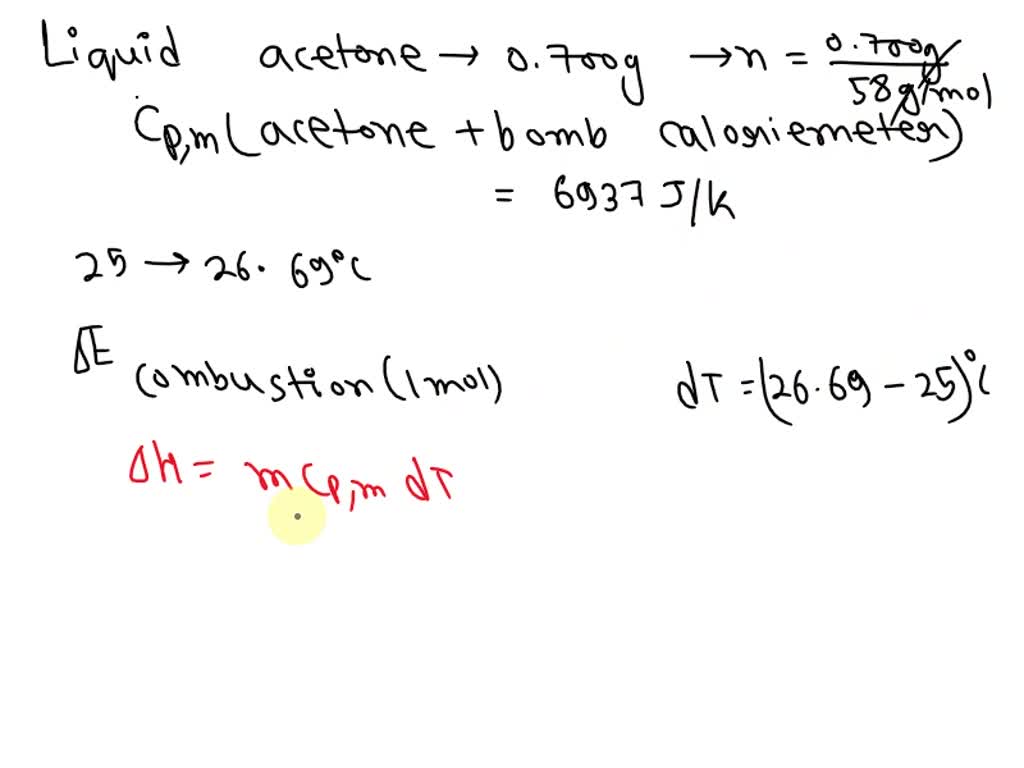 Liquid acetone → 0.700g → n = 0.700g / 58g/mol
Cp,m (acetone + bomb caloriemeter)
= 6937 J/K
25 → 26.69°C
ΔE combustion (1mol)
dT = (26.69 - 25)°C
ΔH = m Cp,m dT